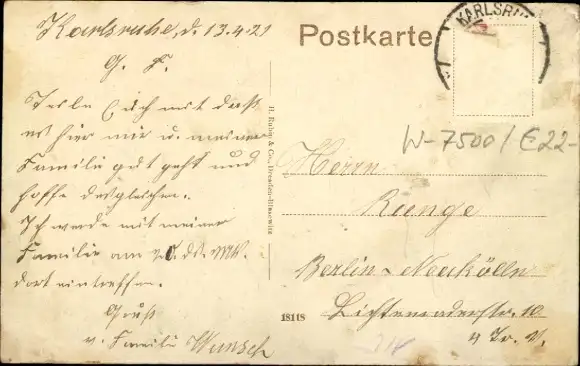 Karlsruhe, d. 13.4.21
G. F.
Teile Euch mit daß
es hier mir u. meiner
Familie gut geht und
hoffe desgleichen.
Ich werde mit meiner
Familie am 20. ds. Mts.
dort eintreffen.
Gruß
v. Familie Wunsch
H. Rubin & Co., Dresden-Blasewitz
18118
Postkarte
KARLSRU
W-7500/E22-
Herrn
Runge
Berlin-Neukölln
10
4 Tr.